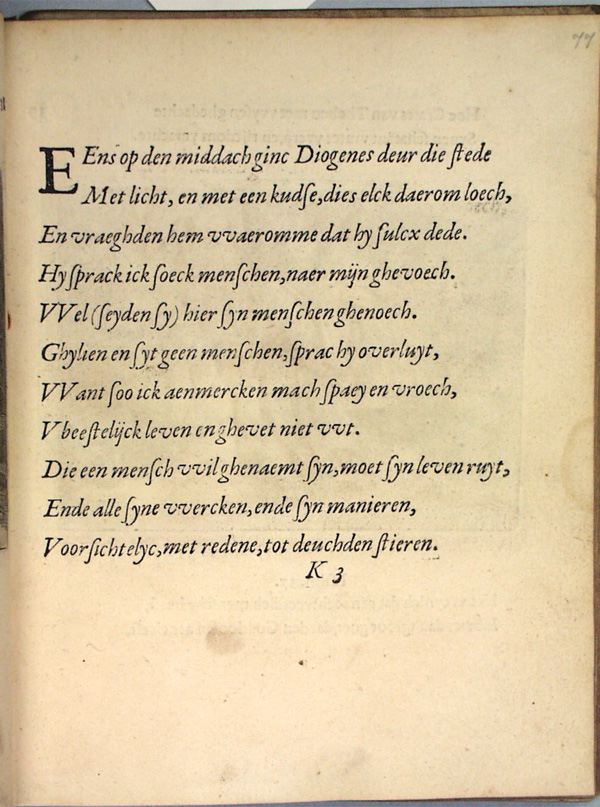 77
EEns op den middach ginc Diogenes deur die ſtede
Met licht, en met een kudſe, dies elck daerom loech,
En vraeghden hem vvaeromme dat hy ſulcx dede.
Hy ſprack ick ſoeck menſchen, naer mijn ghevoech.
VVel (ſeyden ſy) hier ſyn menſchen ghenoech.
Ghylien en ſyt geen menſchen, ſprac hy overluyt,
VVant ſoo ick aenmercken mach ſpaey en vroech,
V beeſtelijck leven en ghevet niet vvt.
Die een menſch vvil ghenaemt ſyn, moet ſyn leven ruyt,
Ende alle ſyne vvercken, ende ſyn manieren,
Voorſichtelyc, met redene, tot deuchden ſtieren.
K 3